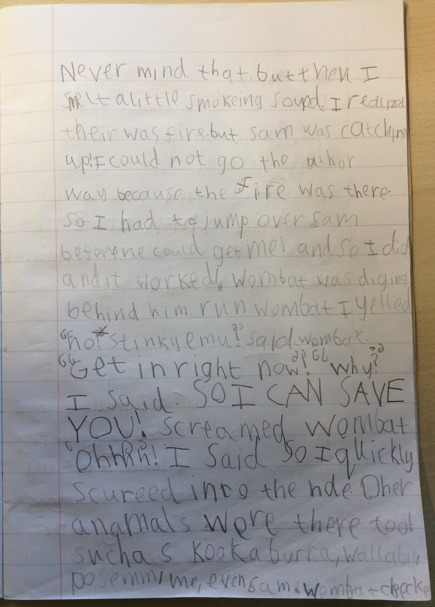 Never mind that. but then I
smelt a little smokeing sound I reduized
their was fire. but sam was catching
up! I could not go the other
way because the fire was there
so I had to jump over sam
beforene could get me! and so I did
and it worked! wombat was diging
behind him. run wombat I yelled
"no! stinky emu?" said wombat
"Get in right now!" "why?"
I said. SO I CAN SAVE
YOU! screamed wombat
"Ohhhh! I said so I quickly
scureed into the hde. Oher
anamals were there too!
such as kookaburra, wallabie
me, even sam. wombat